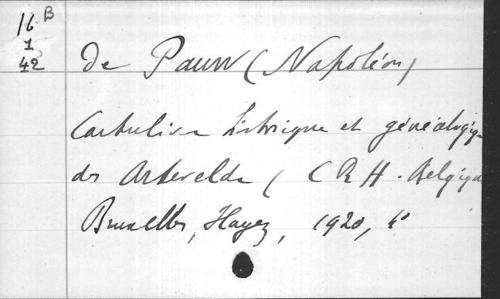 16 B
1
42
de Pauw (Napoléon)
Cartulaire historique et généalogiq
des Artevelde (CRH. Belgiqu
Bruxelles, Hayez, 1920, 4°